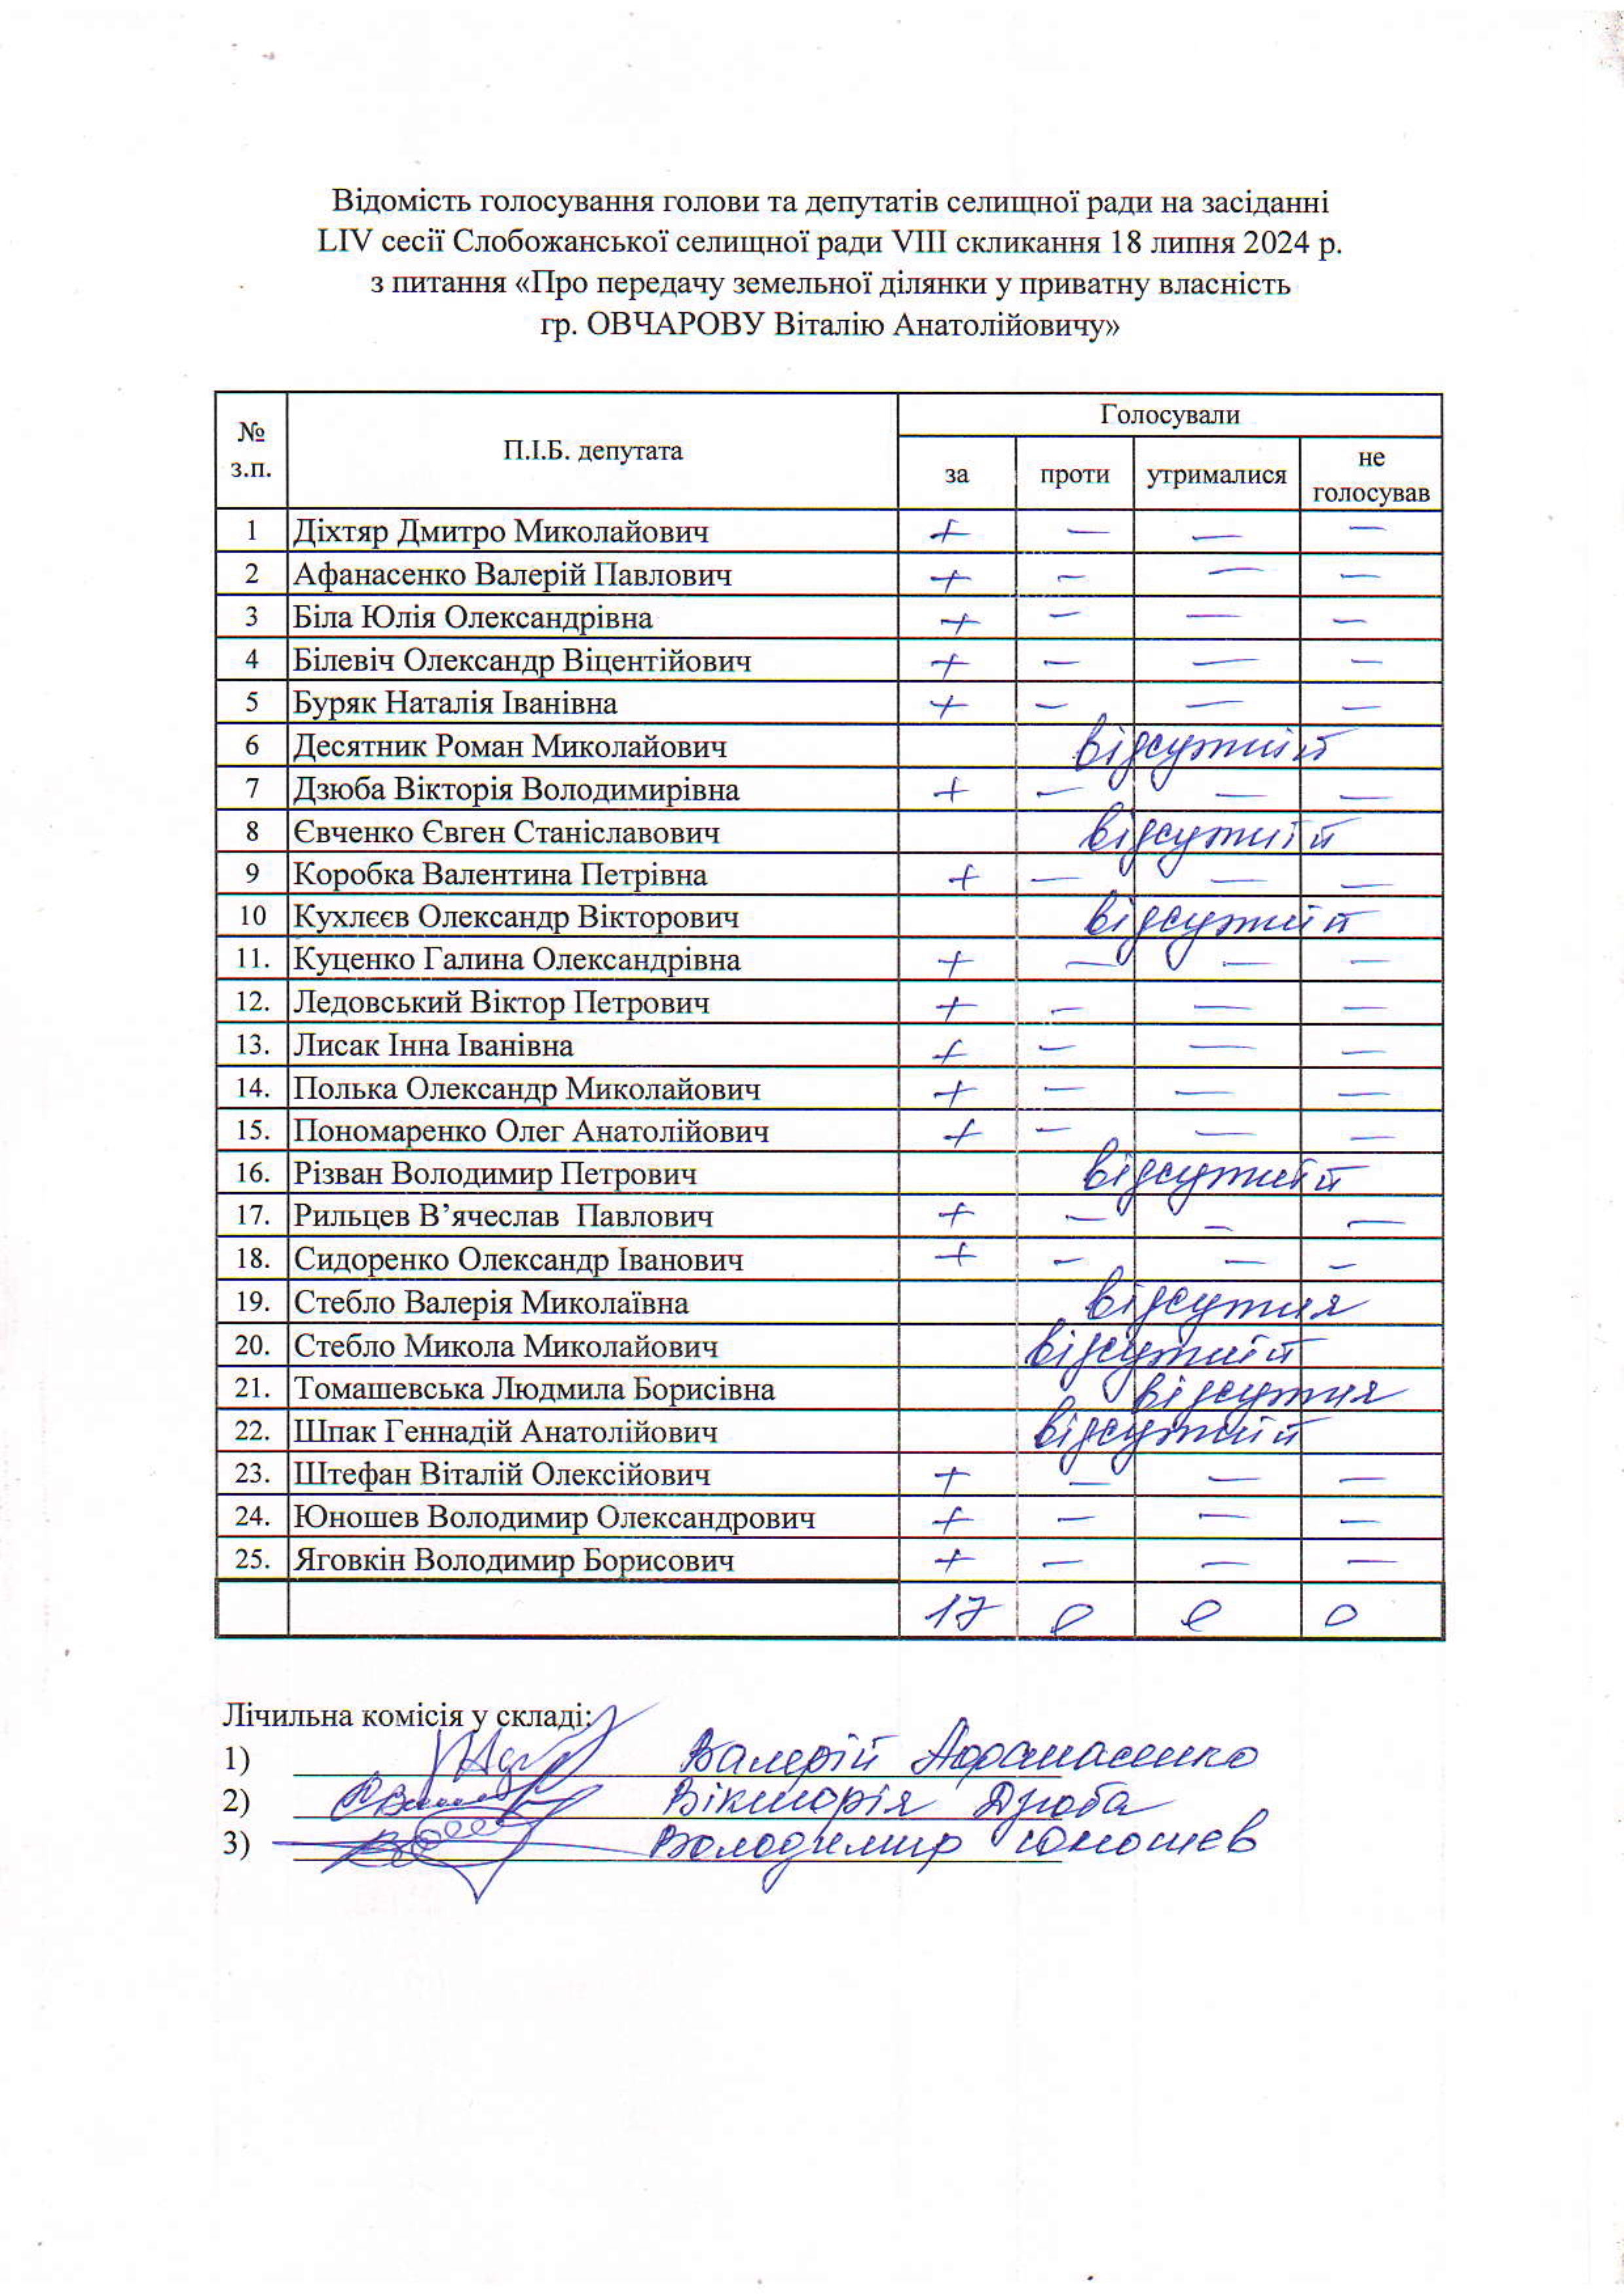 Відомість голосування голови та депутатів селищної ради на засіданні
LIV сесії Слобожанської селищної ради VIII скликання 18 липня 2024 р.
з питання «Про передачу земельної ділянки у приватну власність
гр. ОВЧАРОВУ Віталію Анатолійовичу»
№ з.п. П.І.Б. депутата Голосували
за проти утрималися не голосував
1 Діхтяр Дмитро Миколайович + — — —
2 Афанасенко Валерій Павлович + — — —
3 Біла Юлія Олександрівна + — — —
4 Білевіч Олександр Віцентійович + — — —
5 Буряк Наталія Іванівна + — — —
6 Десятник Роман Миколайович відсутній
7 Дзюба Вікторія Володимирівна + — — —
8 Євченко Євген Станіславович відсутній
9 Коробка Валентина Петрівна + — — —
10 Кухлєєв Олександр Вікторович відсутній
11. Куценко Галина Олександрівна + — — —
12. Ледовський Віктор Петрович + — — —
13. Лисак Інна Іванівна + — — —
14. Полька Олександр Миколайович + — — —
15. Пономаренко Олег Анатолійович + — — —
16. Різван Володимир Петрович відсутній
17. Рильцев В’ячеслав Павлович + — — —
18. Сидоренко Олександр Іванович + — — —
19. Стебло Валерія Миколаївна відсутня
20. Стебло Микола Миколайович відсутній
21. Томашевська Людмила Борисівна відсутня
22. Шпак Геннадій Анатолійович відсутній
23. Штефан Віталій Олексійович + — — —
24. Юношев Володимир Олександрович + — — —
25. Яговкін Володимир Борисович + — — —
17 0 0 0
Лічильна комісія у складі:
1) Валерій Афанасенко
2) Вікторія Дзюба
3) Володимир Юношев